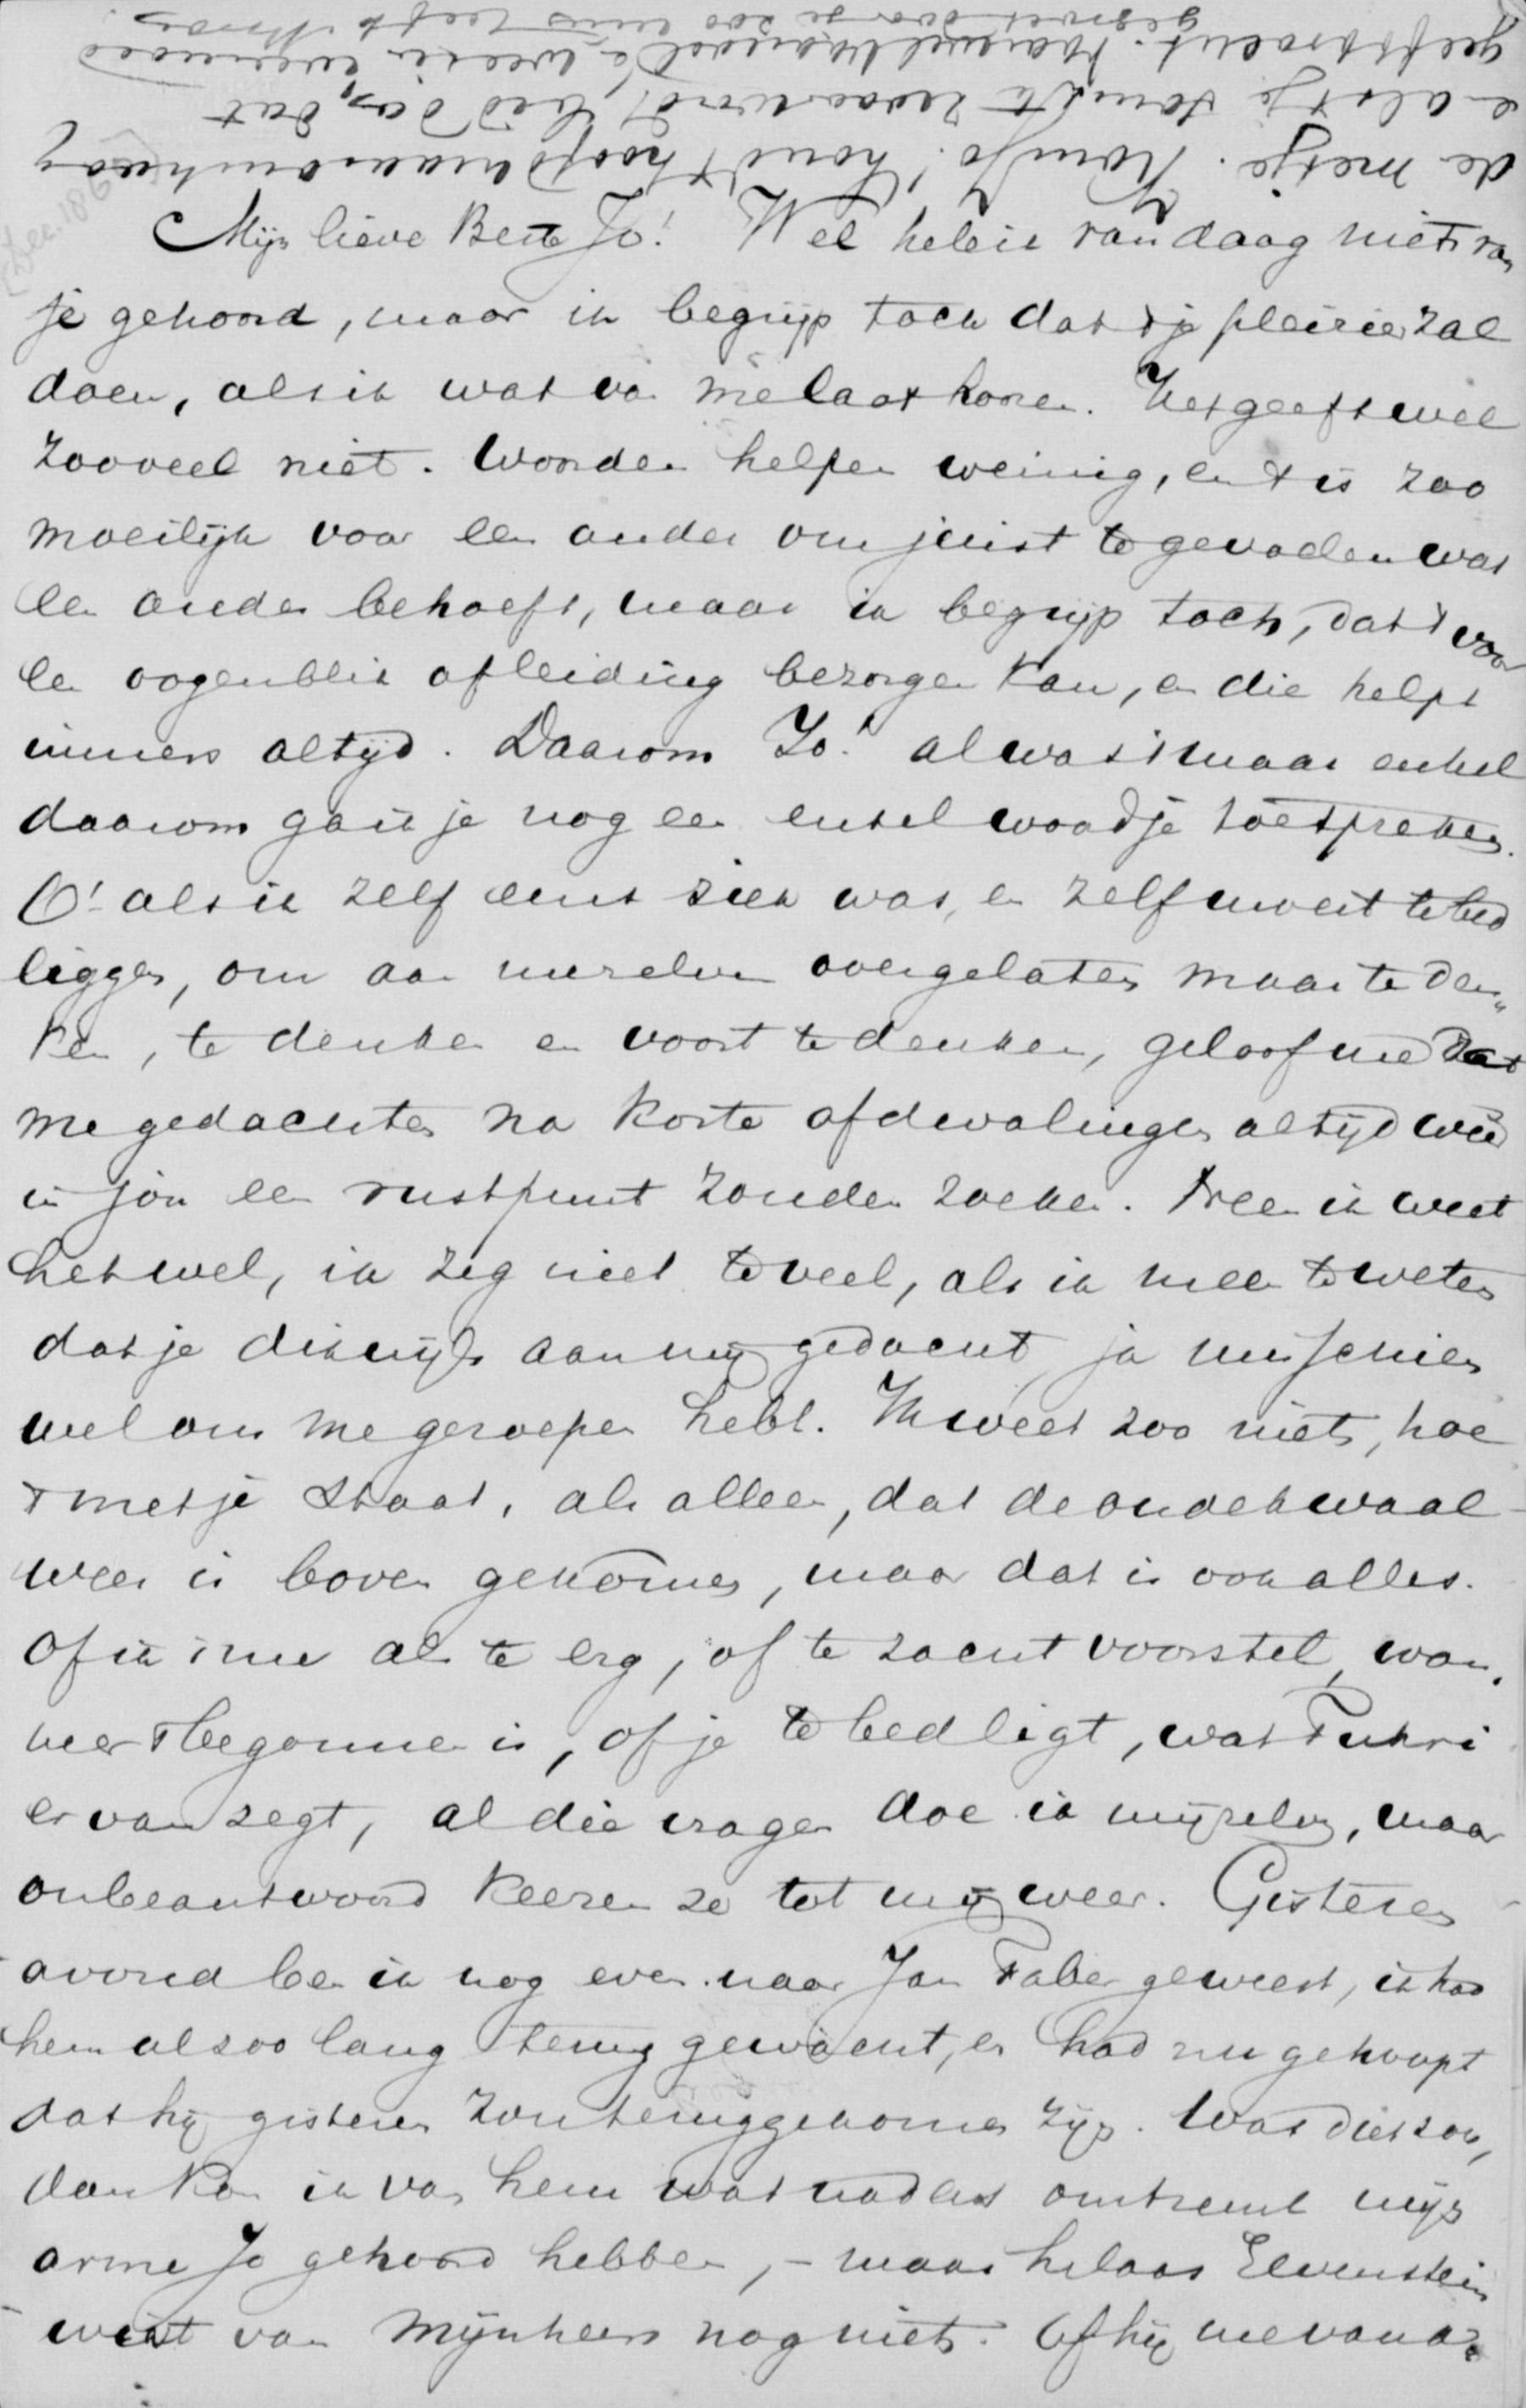 Mijn lieve Beste Jo! Wel heb ik vandaag niets van
je gehoord, maar ik begrijp toch dat 't je pleizier zal
doen, als ik wat van me laat hooren. Het geeft wel
zooveel niet. Woorden helpen weinig, en 't is zoo
moeilijk voor een ander om juist te gevoelen wat
een ander behoeft, maar ik begrijp toch, dat 't voor
een oogenblik afleiding bezorgen kan, en die helpt
immers altijd. Daarom Jo! al was 't maar enkel
daarom ga ik je nog een enkel woordje toespreken.
O! als ik zelf eens ziek was, en zelf moest te bed
liggen, om aan mezelven overgelaten maar te den„
ken, te denken en voort te denken, geloof me dat
me gedachten na korte afdwalingen altijd weer
in jou een rustpunt zouden zoeken. Neen ik weet
het wel, ik zeg niet te veel, als ik meen te weten
dat je dikwijls aan mij gedacht, ja misschien
wel om me geroepen hebt. Ik weet zoo niets, hoe
't met je staat, als alleen, dat de oude kwaal
weer is boven gekomen, maar dat is ook alles.
Of ik 't me als te erg, of te zacht voorstel, wan„
neer 't begonnen is, of je te bed ligt, wat Fuhri
er van zegt, al die vragen doe ik mijzelven, maar
onbeantwoord keeren ze tot mij weer. Gisteren
avond ben ik nog even naar Jan Faber geweest, ik had
hem al zoo lang terug gewacht, en had nu gehoopt
dat hij gisteren zou teruggekomen zijn. Was dit zoo,
dan kon ik van hem wat naders omtrent mijn
arme Jo gehoord hebben, – maar helaas Elvenstein
wist van Mijnheer nog niets. Of hij me van
de metje. Kom Jo! houd 't hoofd maar omhoog
en als 't je soms te zwaar wordt, bid dan, dat
geeft kracht. Vaarwel
gegroet door je zoo